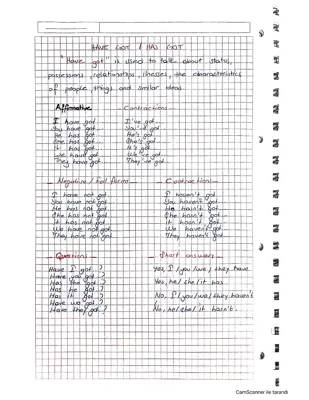 HAVE GOT / HAS GOT
"Have got" is used to talk about states,
possessions, relationships, illnesses, the characteristics
of people, things and similar ideas.
Affirmative Contractions
I have got... I've got...
You have got... You've got...
He has got... He's got...
She has got... She's got...
It has got... It's got...
We have got... We've got...
They have got... They've got...
Negative / Full Forms Contractions
I have not got... I haven't got
You have not got... You haven't got...
He has not got... He hasn't got...
She has not got... She hasn't got...
It has not got... It hasn't got...
We have not got... We haven't got...
They have not got... They haven't got...
Questions Short answers
Have I got...? Yes, I / you / we / they have
Have you got...?
Has she got...? Yes, he / she / it has
Has he got...?
Has it got...? No, I / you / we / they haven't
Have we got...?
Have they got...? No, he / she / it hasn't.
CamScanner ile tarandı